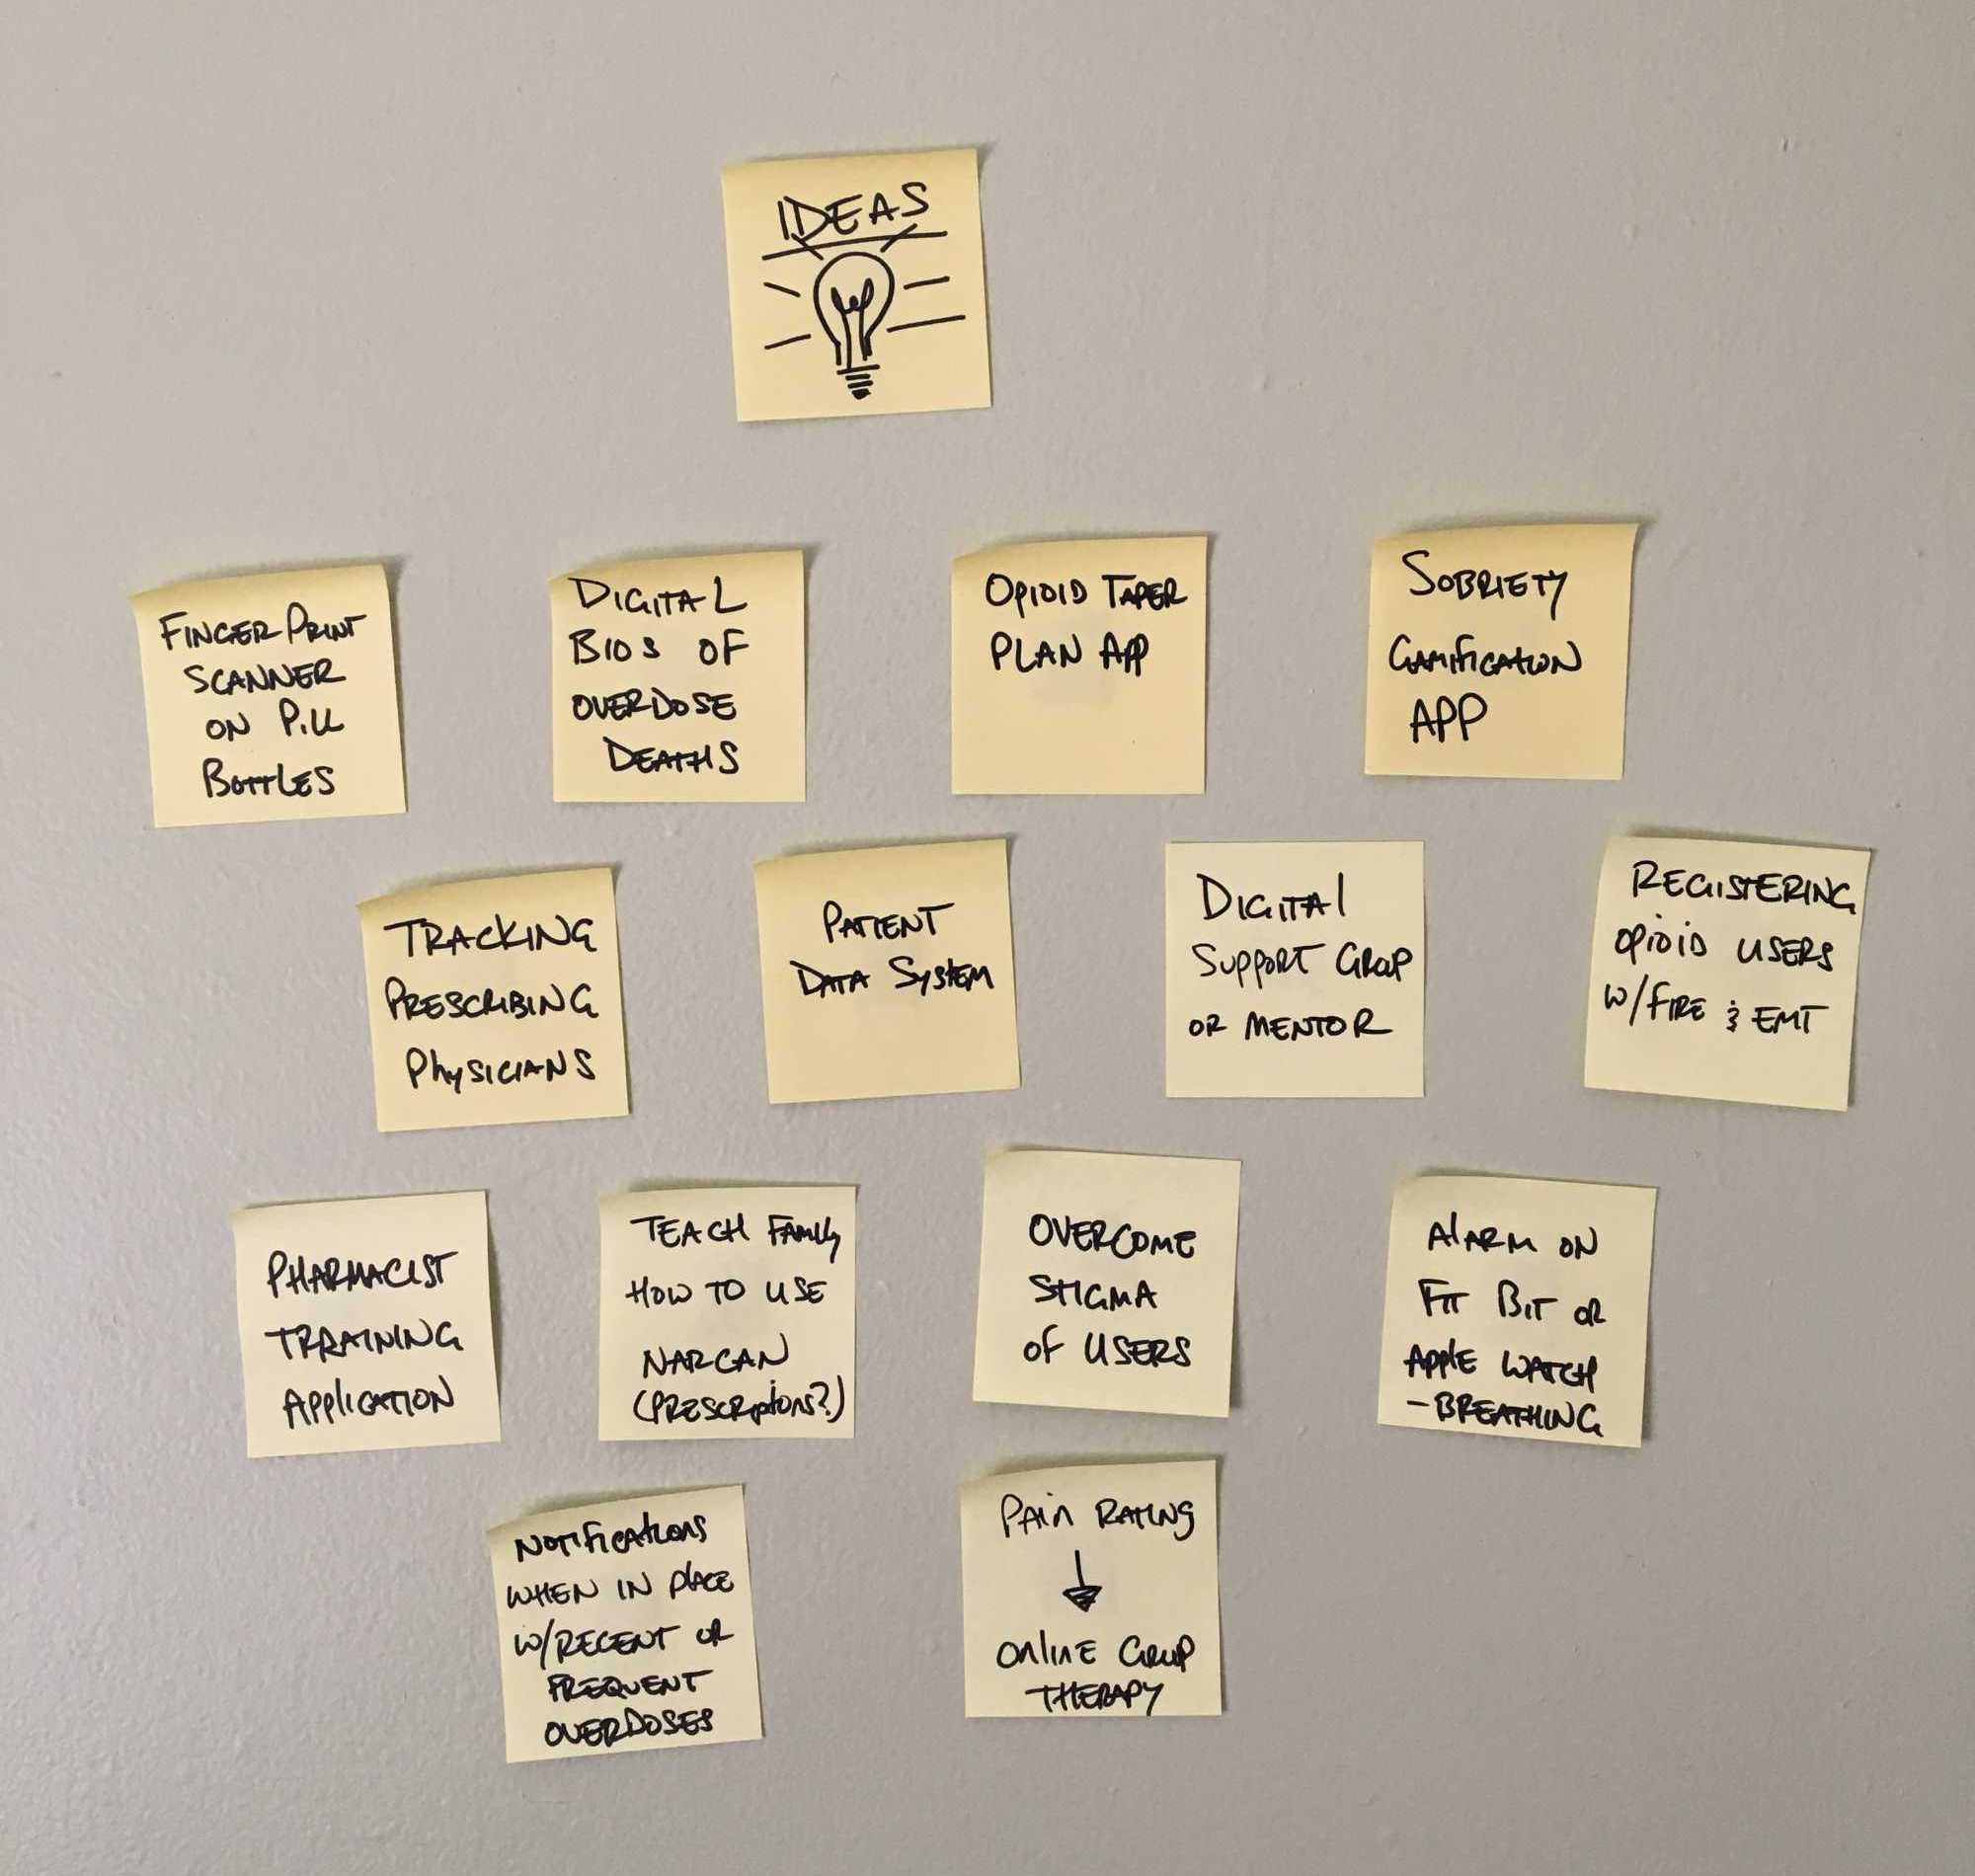 IDEAS
FINGERPRINT
SCANNER
ON PILL
BOTTLES
DIGITAL
BIOS OF
OVERDOSE
DEATHS
OPIOID TAPER
PLAN APP
SOBRIETY
GAMIFICATION
APP
TRACKING
PRESCRIBING
PHYSICIANS
PATIENT
DATA SYSTEM
DIGITAL
SUPPORT GROUP
OR MENTOR
REGISTERING
OPIOID USERS
W/FIRE & EMT
PHARMACIST
TRRAINING
APPLICATION
TEACH FAMILY
HOW TO USE
NARCAN
(PRESCRIPTIONS?)
OVERCOME
STIGMA
OF USERS
ALARM ON
FIT BIT OR
APPLE WATCH
- BREATHING
NOTIFICATIONS
WHEN IN PLACE
W/RECENT OR
FREQUENT
OVERDOSES
PAIN RATING
ONLINE GROUP
THERAPY